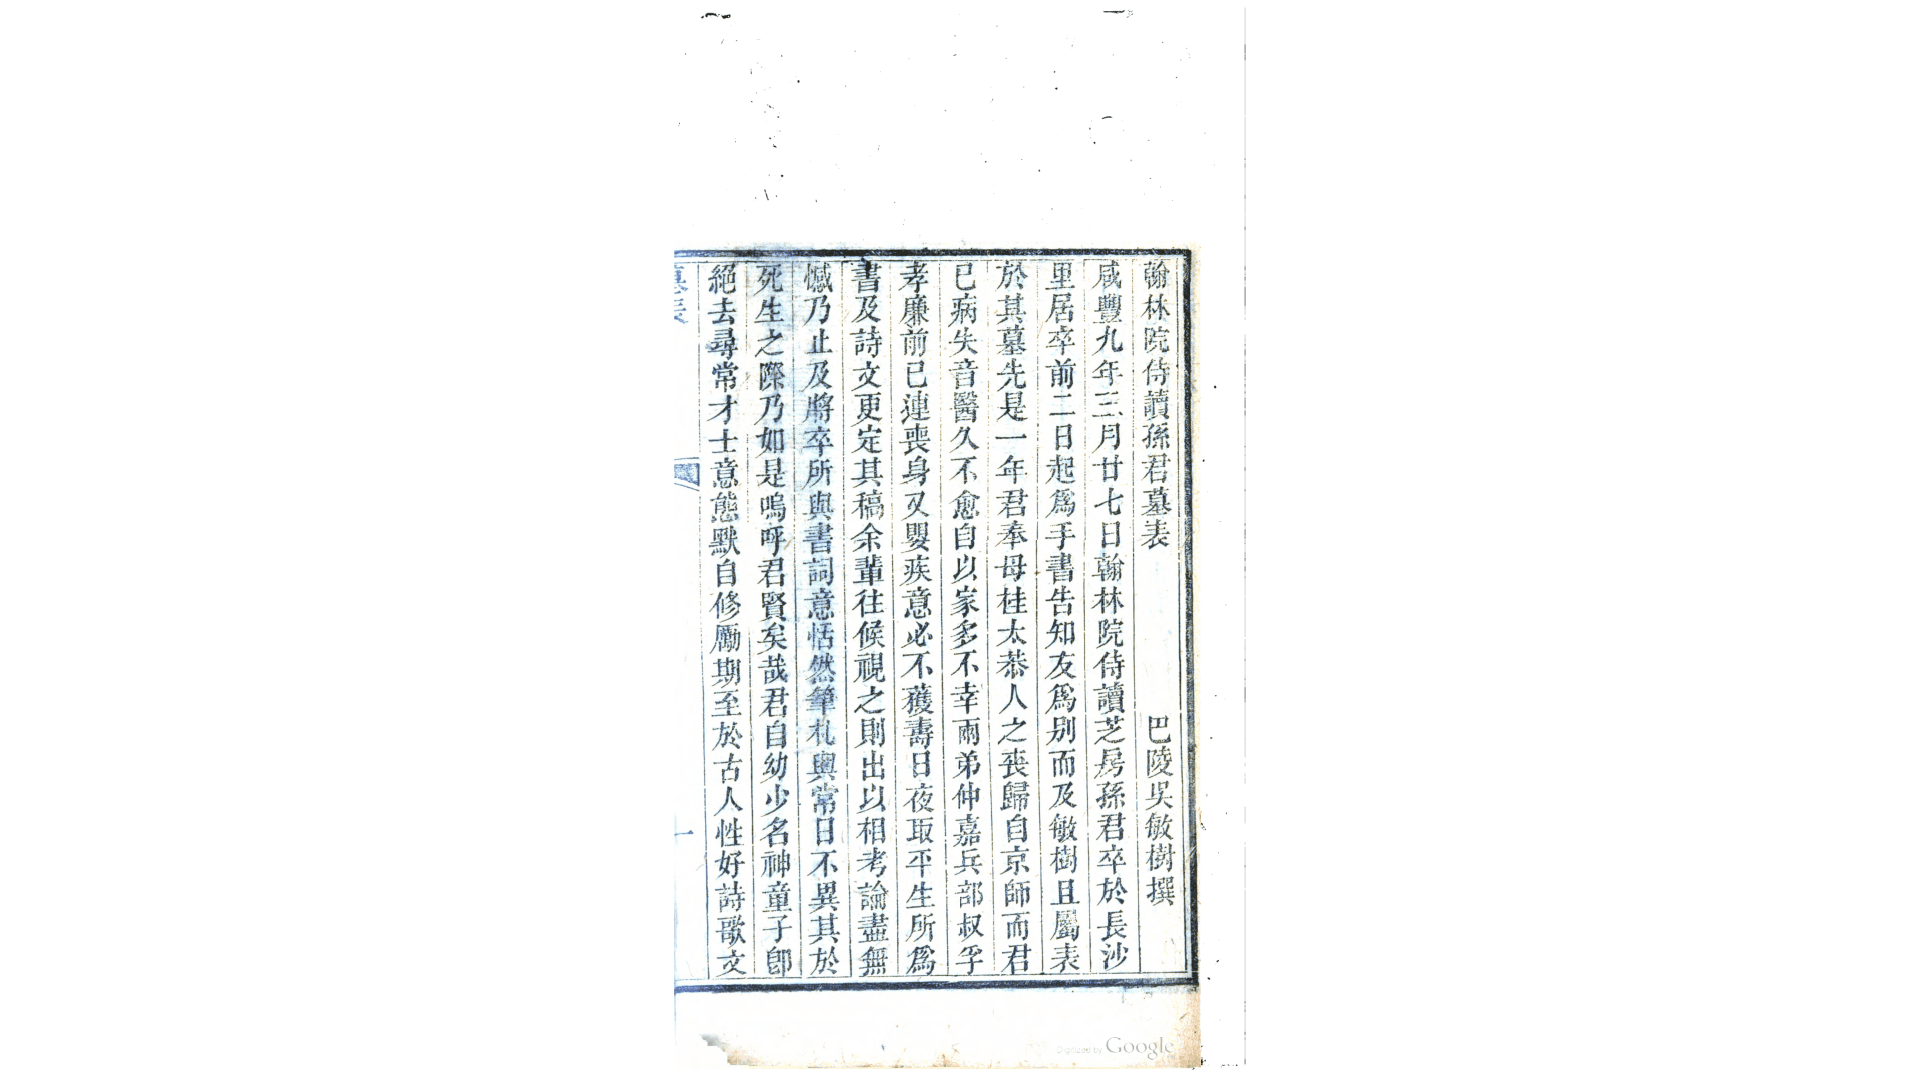 翰林院侍讀孫君墓表 巴陵吳敏樹撰
咸豐九年三月廿七日翰林院侍讀芝房孫君卒於長沙
里居卒前二日起爲手書告知友爲別而及敏樹且屬表
於其墓先是一年君奉母桂太恭人之喪歸自京師而君
已病失音醫久不愈自以家多不幸兩弟仲嘉兵部叔孚
孝廉前已連喪身又嬰疾意必不獲壽日夜取平生所爲
書及詩文更定其稿余輩往候視之則出以相考論盡無
憾乃止及將卒所與書詞意恬然筆札與常日不異其於
死生之際乃如是嗚呼君賢矣哉君自幼少名神童子卽
絕去尋常才士意態默自修勵期至於古人性好詩歌文
墓表
一
Digitized by Google